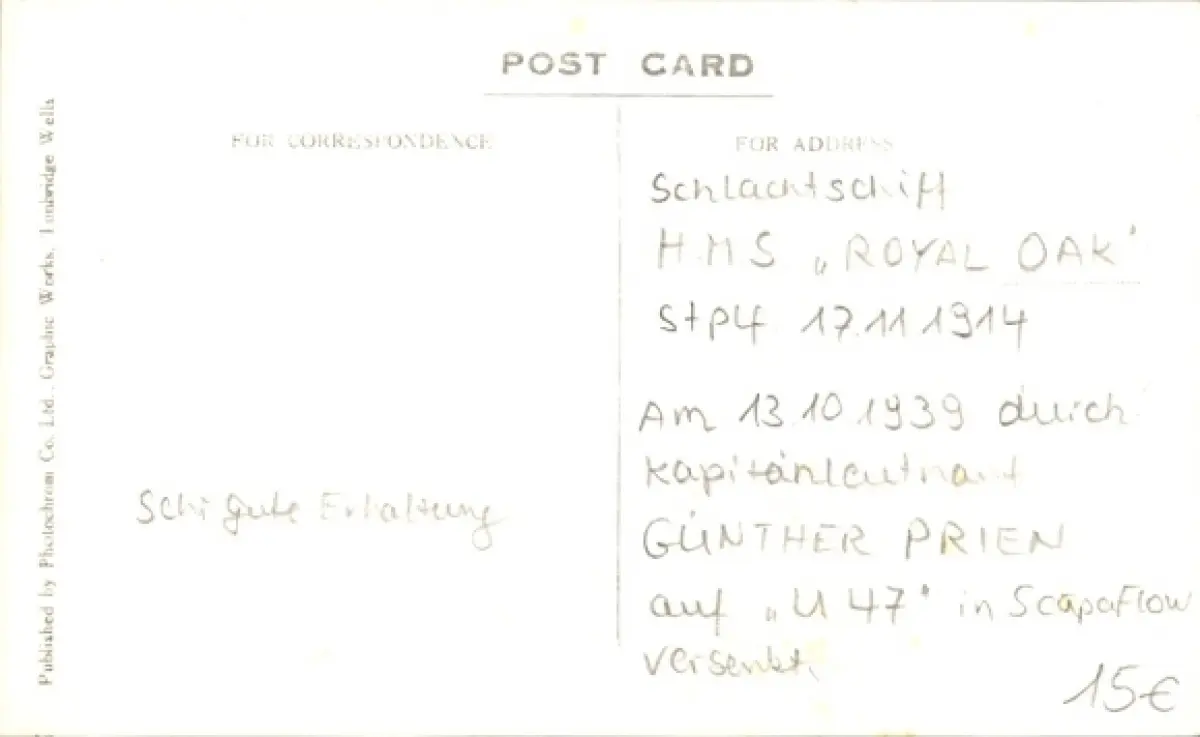 POST CARD
FOR CORRESPONDENCE
FOR ADDRESS
Published by Photochrom Co. Ltd., Graphic Works, Tunbridge Wells
Schlachtschiff
H.M.S „ROYAL OAK"
Stplf 17.11.1914
Am 13.10.1939 durch
Kapitänleutnant
GÜNTHER PRIEN
auf „U 47" in Scapa Flow
versenkt.
Sehr gute Erhaltung
15€